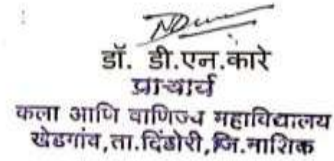 डॉ. डी.एन.कारे
प्राचार्य
कला आणि वाणिज्य महाविद्यालय
खेडगांव,ता.दिंडोरी,जि.नाशिक